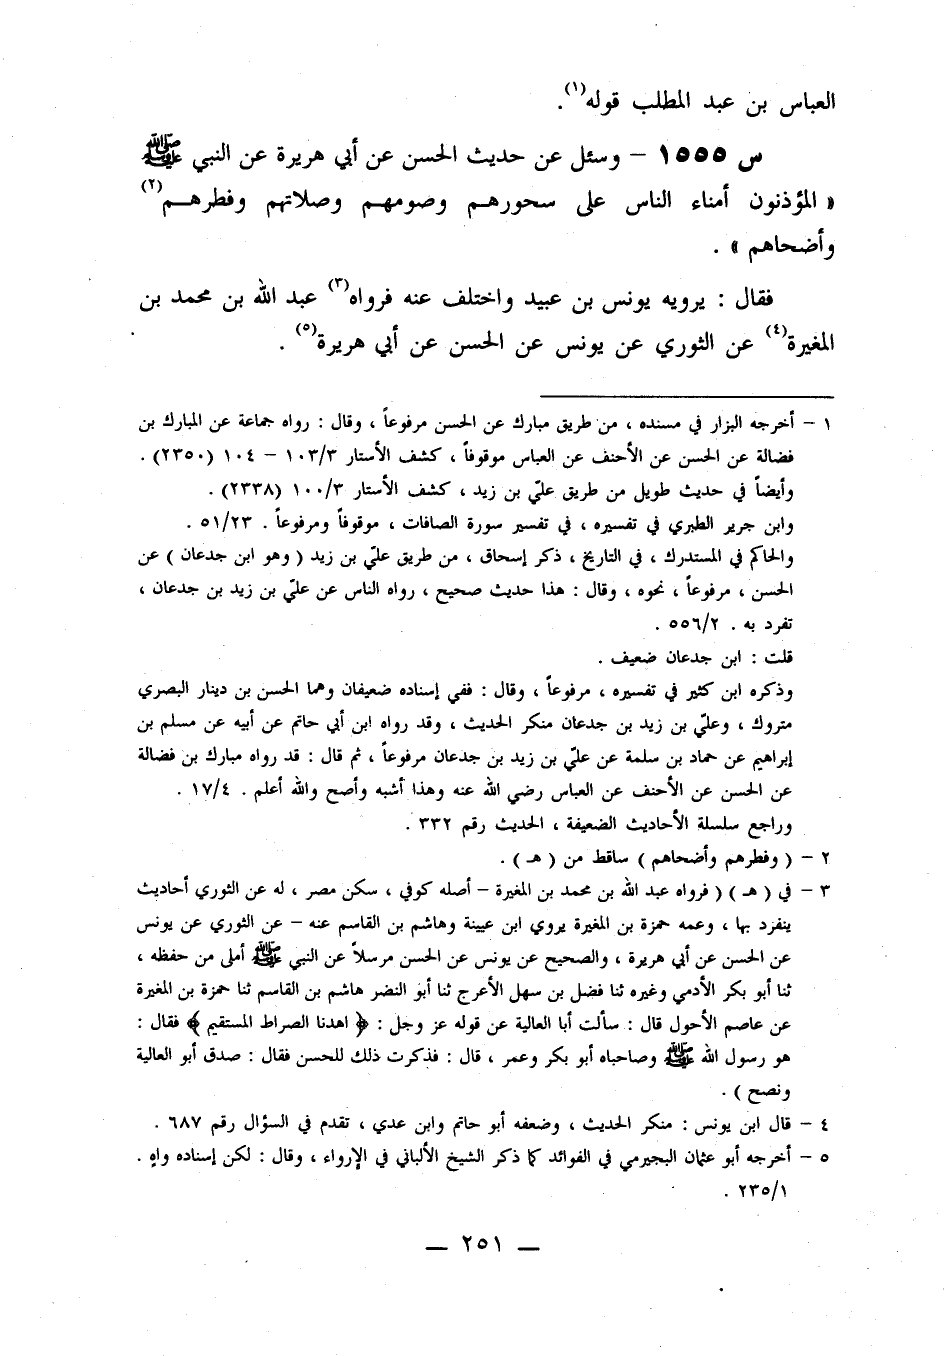 العباس بن عبد المطلب قوله(١).
س ١٥٥٥ – وسئل عن حديث الحسن عن أبي هريرة عن النبي ﷺ
« المؤذنون أمناء الناس على سحورهم وصومهم وصلاتهم وفطرهم(٢)
وأضحاهم » .
فقال : يرويه يونس بن عبيد واختلف عنه فرواه(٣) عبد الله بن محمد بن
المغيرة(٤) عن الثوري عن يونس عن الحسن عن أبي هريرة(٥) .
١ – أخرجه البزار في مسنده ، من طريق مبارك عن الحسن مرفوعاً ، وقال : رواه جماعة عن المبارك بن
فضالة عن الحسن عن الأحنف عن العباس موقوفاً ، كشف الأستار ١٠٣/٣ – ١٠٤ (٢٣٥٠) .
وأيضاً في حديث طويل من طريق عليّ بن زيد ، كشف الأستار ١٠٠/٣ (٢٣٣٨) .
وابن جرير الطبري في تفسيره ، في تفسير سورة الصافات ، موقوفاً ومرفوعاً . ٥١/٢٣ .
والحاكم في المستدرك ، في التاريخ ، ذكر إسحاق ، من طريق عليّ بن زيد ( وهو ابن جدعان ) عن
الحسن ، مرفوعاً ، نحوه ، وقال : هذا حديث صحيح ، رواه الناس عن عليّ بن زيد بن جدعان ،
تفرد به . ٥٥٦/٢ .
قلت : ابن جدعان ضعيف .
وذكره ابن كثير في تفسيره ، مرفوعاً ، وقال : ففي إسناده ضعيفان وهما الحسن بن دينار البصري
متروك ، وعليّ بن زيد بن جدعان منكر الحديث ، وقد رواه ابن أبي حاتم عن أبيه عن مسلم بن
إبراهيم عن حماد بن سلمة عن عليّ بن زيد بن جدعان مرفوعاً ، ثم قال : قد رواه مبارك بن فضالة
عن الحسن عن الأحنف عن العباس رضي الله عنه وهذا أشبه وأصح والله أعلم . ١٧/٤ .
وراجع سلسلة الأحاديث الضعيفة ، الحديث رقم ٣٣٢ .
٢ – ( وفطرهم وأضحاهم ) ساقط من ( هـ ) .
٣ – في ( هـ ) ( فرواه عبد الله بن محمد بن المغيرة – أصله كوفي ، سكن مصر ، له عن الثوري أحاديث
ينفرد بها ، وعمه حمزة بن المغيرة يروي ابن عيينة وهاشم بن القاسم عنه – عن الثوري عن يونس
عن الحسن عن أبي هريرة ، والصحيح عن يونس عن الحسن مرسلاً عن النبي ﷺ أملى من حفظه ،
ثنا أبو بكر الأدمي وغيره ثنا فضل بن سهل الأعرج ثنا أبو النضر هاشم بن القاسم ثنا حمزة بن المغيرة
عن عاصم الأحول قال : سألت أبا العالية عن قوله عز وجل : ﴿ اهدنا الصراط المستقيم ﴾ فقال :
هو رسول الله ﷺ وصاحباه أبو بكر وعمر ، قال : فذكرت ذلك للحسن فقال : صدق أبو العالية
ونصح ) .
٤ – قال ابن يونس : منكر الحديث ، وضعفه أبو حاتم وابن عدي ، تقدم في السؤال رقم ٦٨٧ .
٥ – أخرجه أبو عثمان البجيرمي في الفوائد كما ذكر الشيخ الألباني في الإرواء ، وقال : لكن إسناده واهٍ .
٢٣٥/١ .
— ٢٥١ —